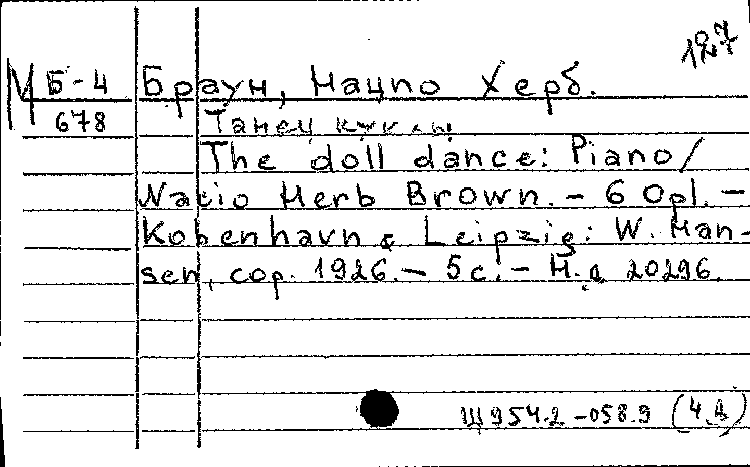 127
М Б-4
678
Браун, Нацио Херб.
Танец куклы
The doll dance: Piano/
Nacio Herb Brown. – 6 Opl. –
Kobenhavn & Leipzig: W. Han-
sen, cop. 1926. – 5 с. – Н.д. 20296.
Щ954.2-058.9 (4.Д)